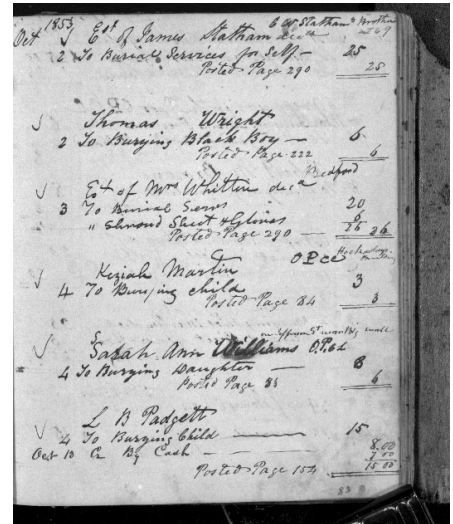 1853
Oct √ Est of James Statham decd C W Statham & Brother
2 To Burial Services for Self — 25
Posted Page 290 25
√ Thomas Wright
2 To Burying Black Boy — 6
Posted Page 222 6
√ Est of Mrs Whitten decd Bedford
3 To Burial Servs 20
" Shroud Sheet & Gloves 6
Posted Page 290 — 26 26
√ Keziah Martin OPCC
4 To Burying child 3
Posted Page 84 3
on Jefferson St
√ Sarah Ann Williams O.P.
4 To Burying Daughter — 6
Posted Page 83 6
√ L B Padgett
4 To Burying Child — 15
Oct 13 Cr By Cash — 8.00
7 00
Posted Page 154 15 00
83